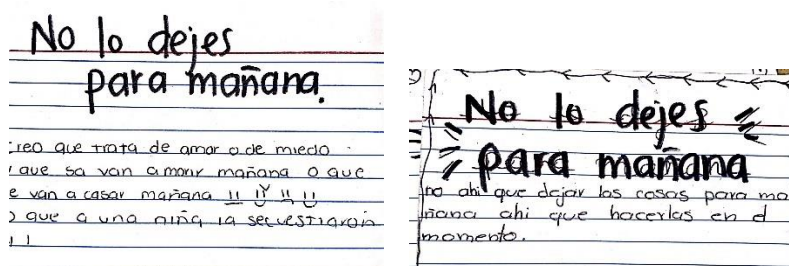 No lo dejes
para mañana.
creo que trata de amor o de miedo
que sa van a morir mañana o que
e van a casar mañana
o que a una niña la secuestraron
No lo dejes
para mañana
no ahi que dejar las cosas para ma
ñana ahi que hacerlas en el
momento.